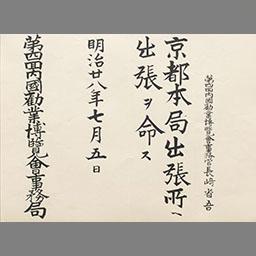 第四回内國勧業博覧會事務官長﨑省吾
京都本局出張所ヘ
出張ヲ命ス
明治廿八年七月五日
第四回内國勧業博覧會事務局